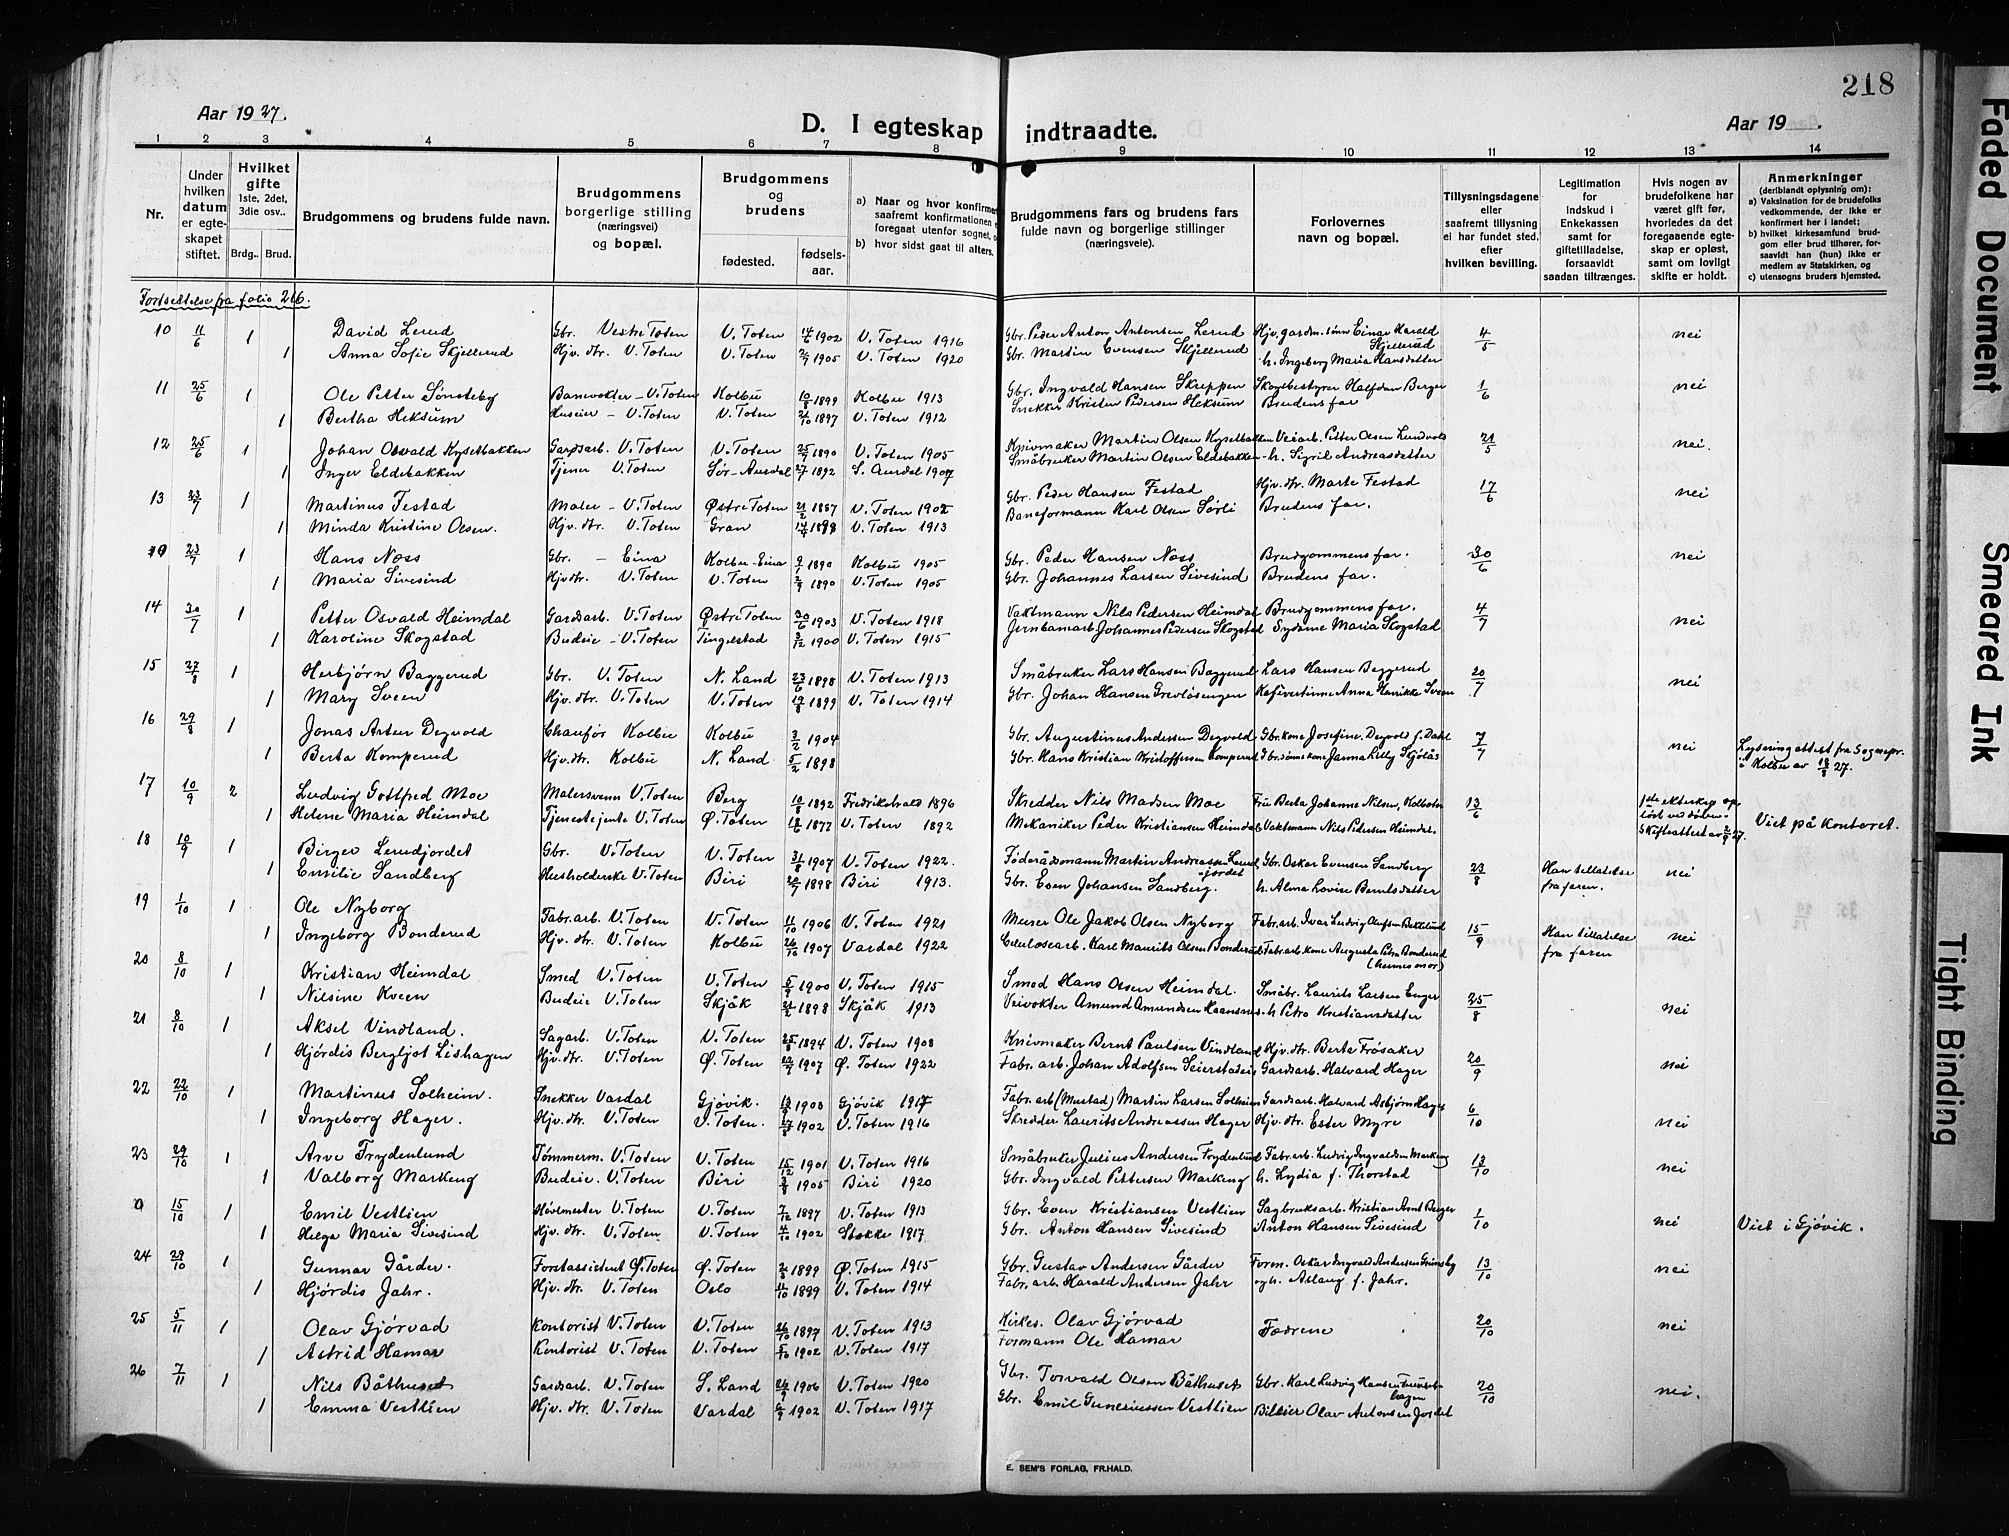 218
Aar 1927.
D. I egteskap indtraadte.
Aar 19 .
1 2 3 4 5 6 7 8 9 10 11 12 13 14
Nr.
Under hvilken datum er egteskapet stiftet.
Hvilket gifte 1ste, 2det, 3die osv..
Brdg.. Brud.
Brudgommens og brudens fulde navn.
Brudgommens borgerlige stilling (næringsvei) og bopæl.
Brudgommens og brudens
fødested. fødselsaar.
a) Naar og hvor konfirm
saafremt konfirmationen
foregaat utenfor sognet,
b) hvor sidst gaat til alters.
Brudgommens fars og brudens fars fulde navn og borgerlige stillinger (næringsveie).
Forlovernes navn og bopæl.
Tillysningsdagene eller saafremt tillysning ei har fundet sted, efter hvilken bevilling.
Legitimation for Indskud i Enkekassen samt for giftetilladelse, forsaavidt saadan tiltrænges.
Hvis nogen av brudefolkene har været gift før, hvorledes da det foregaaende egteskap er opløst, samt om lovligt skifte er holdt.
Anmerkninger (deriblandt oplysning om): a) Vaksination for de brudefolks vedkommende, der ikke er konfirmert her i landet; b) hvilket kirkesamfund brudgom eller brud tilhører, forsaavidt han (hun) ikke er medlem av Statskirken, og c) utensogns bruders hjemsted.
Fortsettelse fra folio 216.
10 11/6 1 David Lerud Gbr. Vestre Toten V. Toten 14/6 1902 V. Toten 1916 Gbr. Peder Anton Antonsen Lerud Hjv. gardm. sønn Einar Harald Skjellerud 4/5 nei
1 Anna Sofie Skjellerud Hjv. dtr. V. Toten V. Toten 2/9 1905 V. Toten 1920 Gbr. Martin Evensen Skjellerud h. Ingeborg Maria Hansdatter
11 25/6 1 Ole Petter Sønsteby Banevokter - V. Toten Kolbu 10/8 1899 Kolbu 1913 Gbr. Ingvald Hansen Skreppen Skogbestyrer Halfdan Berger 1/6 nei
1 Bertha Heksum V. Toten V. Toten 21/10 1897 V. Toten 1912 Snekker Kristen Pedersen Heksum Brudens far
12 25/6 1 Johan Osvald Kysetbakken Gardsarb. V. Toten V. Toten 25/9 1890 V. Toten 1905 Knivmaker Martin Olsen Kysetbakken Veiarb. Petter Olsen Lundvold 21/5 nei.
1 Inger Eldebakken Tjener V. Toten Sør-Aurdal 27/7 1892 S. Aurdal 1907 Småbruker Martin Olsen Eldebakken h. Sigril Andreasdatter
13 23/7 1 Martinus Festad Maler - V. Toten Østre Toten 21/2 1887 V. Toten 1902 Gbr. Peder Hansen Festad Hjv. dtr. Marte Festad 17/6 nei
1 Minda Kristine Olsen. Hjv. dtr. - V. Toten Gran 14/4 1898 V. Toten 1913 Baneformann Karl Olsen Sørli Brudens far.
0 23/7 1 Hans Næss Gbr. - Eina Kolbu-Eina 9/1 1890 Kolbu 1905 Gbr. Peder Hansen Næss Brudgommens far. 30/6 nei
1 Maria Sivesind Hjv. dtr. V. Toten V. Toten 2/9 1890 V. Toten 1905 Gbr. Johannes Larsen Sivesind Brudens far.
14 30/7 1 Petter Osvald Heimdal Gardsarb. V. Toten Østre Toten 30/6 1903 V. Toten 1918 Vaktmann Nils Pedersen Heimdal Brudgommens far. 4/7 nei
1 Karoline Skogstad Budeie - V. Toten Tingelstad 3/12 1900 V. Toten 1915 Jernbanearb. Johannes Pedersen Skogstad Sydame Maria Skogstad
15 27/8 1 Herbjørn Baggerud Gbr. V. Toten N. Land 23/6 1898 V. Toten 1913 Småbruker Lars Hansen Baggerud Lars Hansen Baggerud 20/7 nei
1 Mary Sveen Hjv. dtr. V. Toten V. Toten 19/8 1899 V. Toten 1914 Gbr. Johan Hansen Grevløsengen Kafévertinne Anna Henrikke Sveen
16 29/8 1 Jonas Artur Degvold Chaufør Kolbu Kolbu 3/2 1904 Gbr. Augustinus Andersen Degvold Gbr. kone Josefine Degvold f. Dahl 7/7 nei Lysningattest fra Sognepr.
1 Berta Komperud Hjv. dtr. Kolbu N. Land 5/2 1898 Gbr. Hans Kristian Kristoffersen Komperud Gbr. sønns kone Janna Lilly Skjølås i Kolbu av 18/8 27.
17 10/9 2 Ludvig Gottfred Moe Malersvenn V. Toten Berg 10/8 1892 Fredrikshald 1896 Skredder Nils Madsen Moe Fru Berta Johanne Nilsen, Kolboln 13/6 1ste ekteskap opløst ved døden. Skifteattest av 2/9 27. Viet på kontoret.
1 Helene Maria Heimdal Tjenestejente V. Toten Ø. Toten 18/6 1877 V. Toten 1892 Mekaniker Peder Kristiansen Heimdal Vaktmann Nils Pedersen Heimdal.
18 10/9 1 Birger Lerudjordet Gbr. V. Toten V. Toten 31/8 1907 V. Toten 1922. Føderådsmann Martin Andreassen Lerudjordet Gbr. Oskar Evensen Sandberg 23/8 Han tillatelse fra faren. nei
1 Emilie Sandberg Husholderske V. Toten Biri 20/7 1898 Biri 1913. Gbr. Even Johansen Sandberg. h. Alma Lovise Berntsdatter
19 1/10 1 Ole Nyborg Fabr. arb. V. Toten V. Toten 11/10 1906 V. Toten 1921 Murer Ole Jakob Olsen Nyborg Fabr. arb. Ivar Ludvig Olufsen Bekkelund 15/9 Han tillatelse fra faren nei
1 Ingeborg Bonderud Hjv. dtr. V. Toten Kolbu 26/10 1907 Vardal 1922 Cellulosearb. Karl Mauritz Olsen Bonderud Fabr. arb. kone Augusta Petra Bonderud (hennes mor)
20 8/10 1 Kristian Heimdal Smed V. Toten V. Toten 5/9 1900 V. Toten 1915 Smed Hans Olsen Heimdal. Småbr. Laurits Larsen Enger 25/8 nei
1 Nilsine Kveen Budeie V. Toten Skjåk 21/2 1898 Skjåk 1913 Veivokter Amund Amundsen h. Petra Kristiansdatter
21 8/10 1 Aksel Vindland. Sagarb. V. Toten V. Toten 25/8 1894 V. Toten 1908 Knivmaker Bernt Paulsen Vindland Hjv. dtr. Berta Frøsaker 20/9 nei
1 Hjørdis Bergljot Lishagen Hjv. dtr. V. Toten Ø. Toten 22/9 1907 Ø. Toten 1922 Fabr. arb. Johan Adolfsen Seierstadeie Gardsarb. Halvard Hager
22 22/10 1 Martinus Solheim. Snekker Vardal Gjøvik. 13/9 1903 Gjøvik 1917 Fabr. arb (Mustad) Martin Larsen Solheim Gardsarb. Halvard Asbjørn Hager 6/10 nei
1 Ingeborg Hager. Hjv. dtr. V. Toten V. Toten. 17/8 1902 V. Toten 1916 Skredder Laurits Andreassen Hager Hjv. dtr. Ester Myre
23 29/10 1 Arve Frydenlund Tømmerm. V. Toten V. Toten 15/12 1901 V. Toten 1916 Småbruker Julius Andersen Frydenlund Fabr. arb. Ludvig Ingvaldsen Markeng 13/10 nei
1 Valborg Markeng Budeie. V. Toten Biri 3/8 1905 Biri 1920 Gbr. Ingvald Pettersen Markeng h. Lydia f. Thorstad
0 15/10 1 Emil Vestlien Høvlmester V. Toten V. Toten 7/12 1897 V. Toten 1913 Gbr. Even Kristiansen Vestlien Sagbruksarb. Kristian Arnt Berger 1/10 nei Viet i Gjøvik.
1 Helga Maria Sivesind Hjv. dtr. V. Toten V. Toten 4/10 1902 Stokke 1917 Gbr. Anton Hansen Sivesind Anton Hansen Sivesind
24 29/10 1 Gunnar Gårder. Forstassistent Ø. Toten Ø. Toten 21/8 1899 Ø. Toten 1915 Gbr. Gustav Andersen Gårder Form. Oskar Ingvald Andersen Grimsby 13/10 nei
1 Hjørdis Jahr. Hjv. dtr. V. Toten Oslo 11/10 1899 V. Toten 1914 Fabr. arb. Harald Andersen Jahr og h. Aslaug f. Jahr.
25 5/11 1 Olav Gjørvad Kontorist V. Toten V. Toten 26/10 1897 V. Toten 1913 Kirkes. Olav Gjørvad Fædrene 20/10 nei
1 Astrid Hamar Kontorist V. Toten V. Toten 5/10 1902 V. Toten 1917 Formann Ole Hamar
26 7/11 1 Nils Båthuset Gardsarb. V. Toten S. Land 26/9 1906 V. Toten 1920 Gbr. Torvald Olsen Båthuset Gbr. Karl Ludvig Hansen 20/10 nei.
1 Emma Vestlien Hjv. dtr. V. Toten Vardal 6/9 1902 V. Toten 1917 Gbr. Emil Gunerius­sen Vestlien Olav Antonsen Jordet
E. SEM'S FORLAG, FR.HALD.
Faded Document
Smeared Ink
Tight Binding